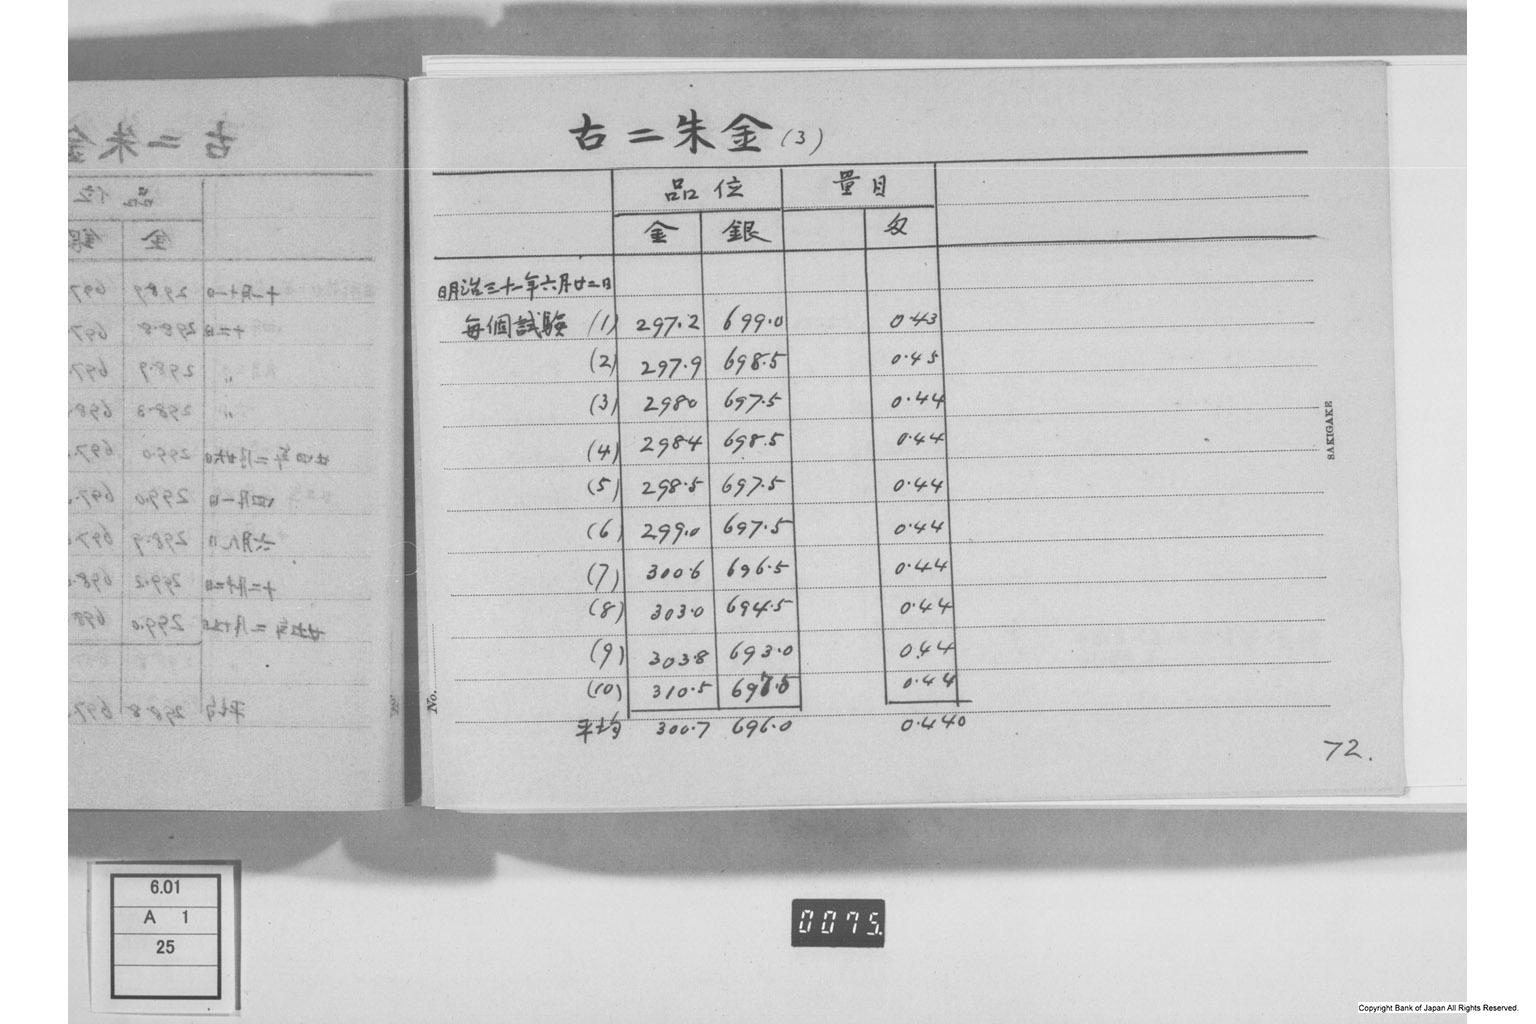 古二朱金(3)
品位 量目
金 銀 匁
明治三十一年六月廿二日
每個試驗 (1) 297.2 699.0 0.43
(2) 297.9 698.5 0.45
(3) 298.0 697.5 0.44
(4) 298.4 698.5 0.44
(5) 298.5 697.5 0.44
(6) 299.0 697.5 0.44
(7) 300.6 696.5 0.44
(8) 303.0 694.5 0.44
(9) 303.8 693.0 0.44
(10) 310.5 0.44
平均 300.7 696.0 0.440
72.
No.
SAKIGAKE
6.01
A 1
25
0075
Copyright Bank of Japan All Rights Reserved.